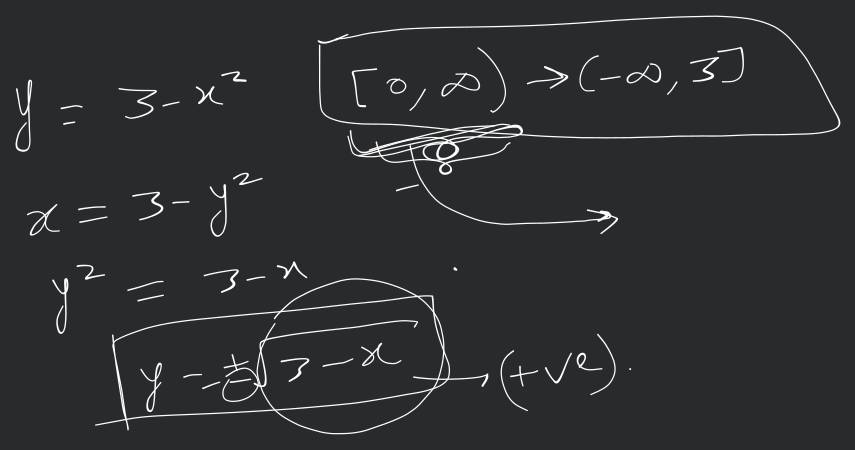 y = 3 - x²
[0, ∞) → (-∞, 3]
x = 3 - y²
y² = 3 - x
y = ±√3 - x → (+ve).